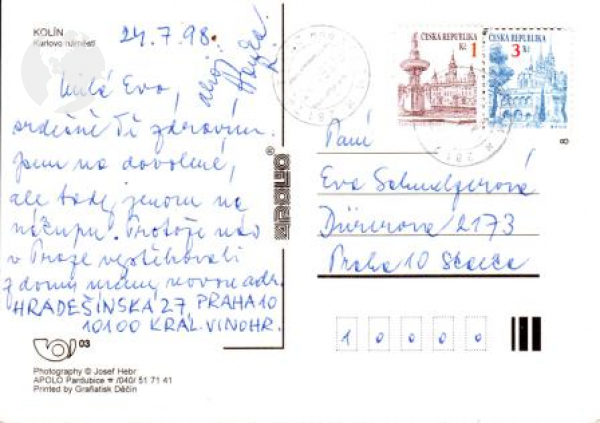 KOLÍN
Karlovo náměstí
24.7.98
Milá Evo,
srdečně Tě zdravím.
Jsem na dovolené,
ale tady jenom na
nákupu. Protože nás
v Praze vystěhovali
z domu máme novou adr.
HRADEŠÍNSKÁ 27, PRAHA 10
10100 KRÁL. VINOHR.
ahoj
03
Photography © Josef Hebr
APOLO Pardubice ☎ /040/ 51 71 41
Printed by Grafiatisk Děčín
ČESKÁ REPUBLIKA
Kč 1
ČESKÁ REPUBLIKA
3 Kč
8
Paní
Eva Schmelzerová
Dürerova 2173
Praha 10
1 0 0 0 0